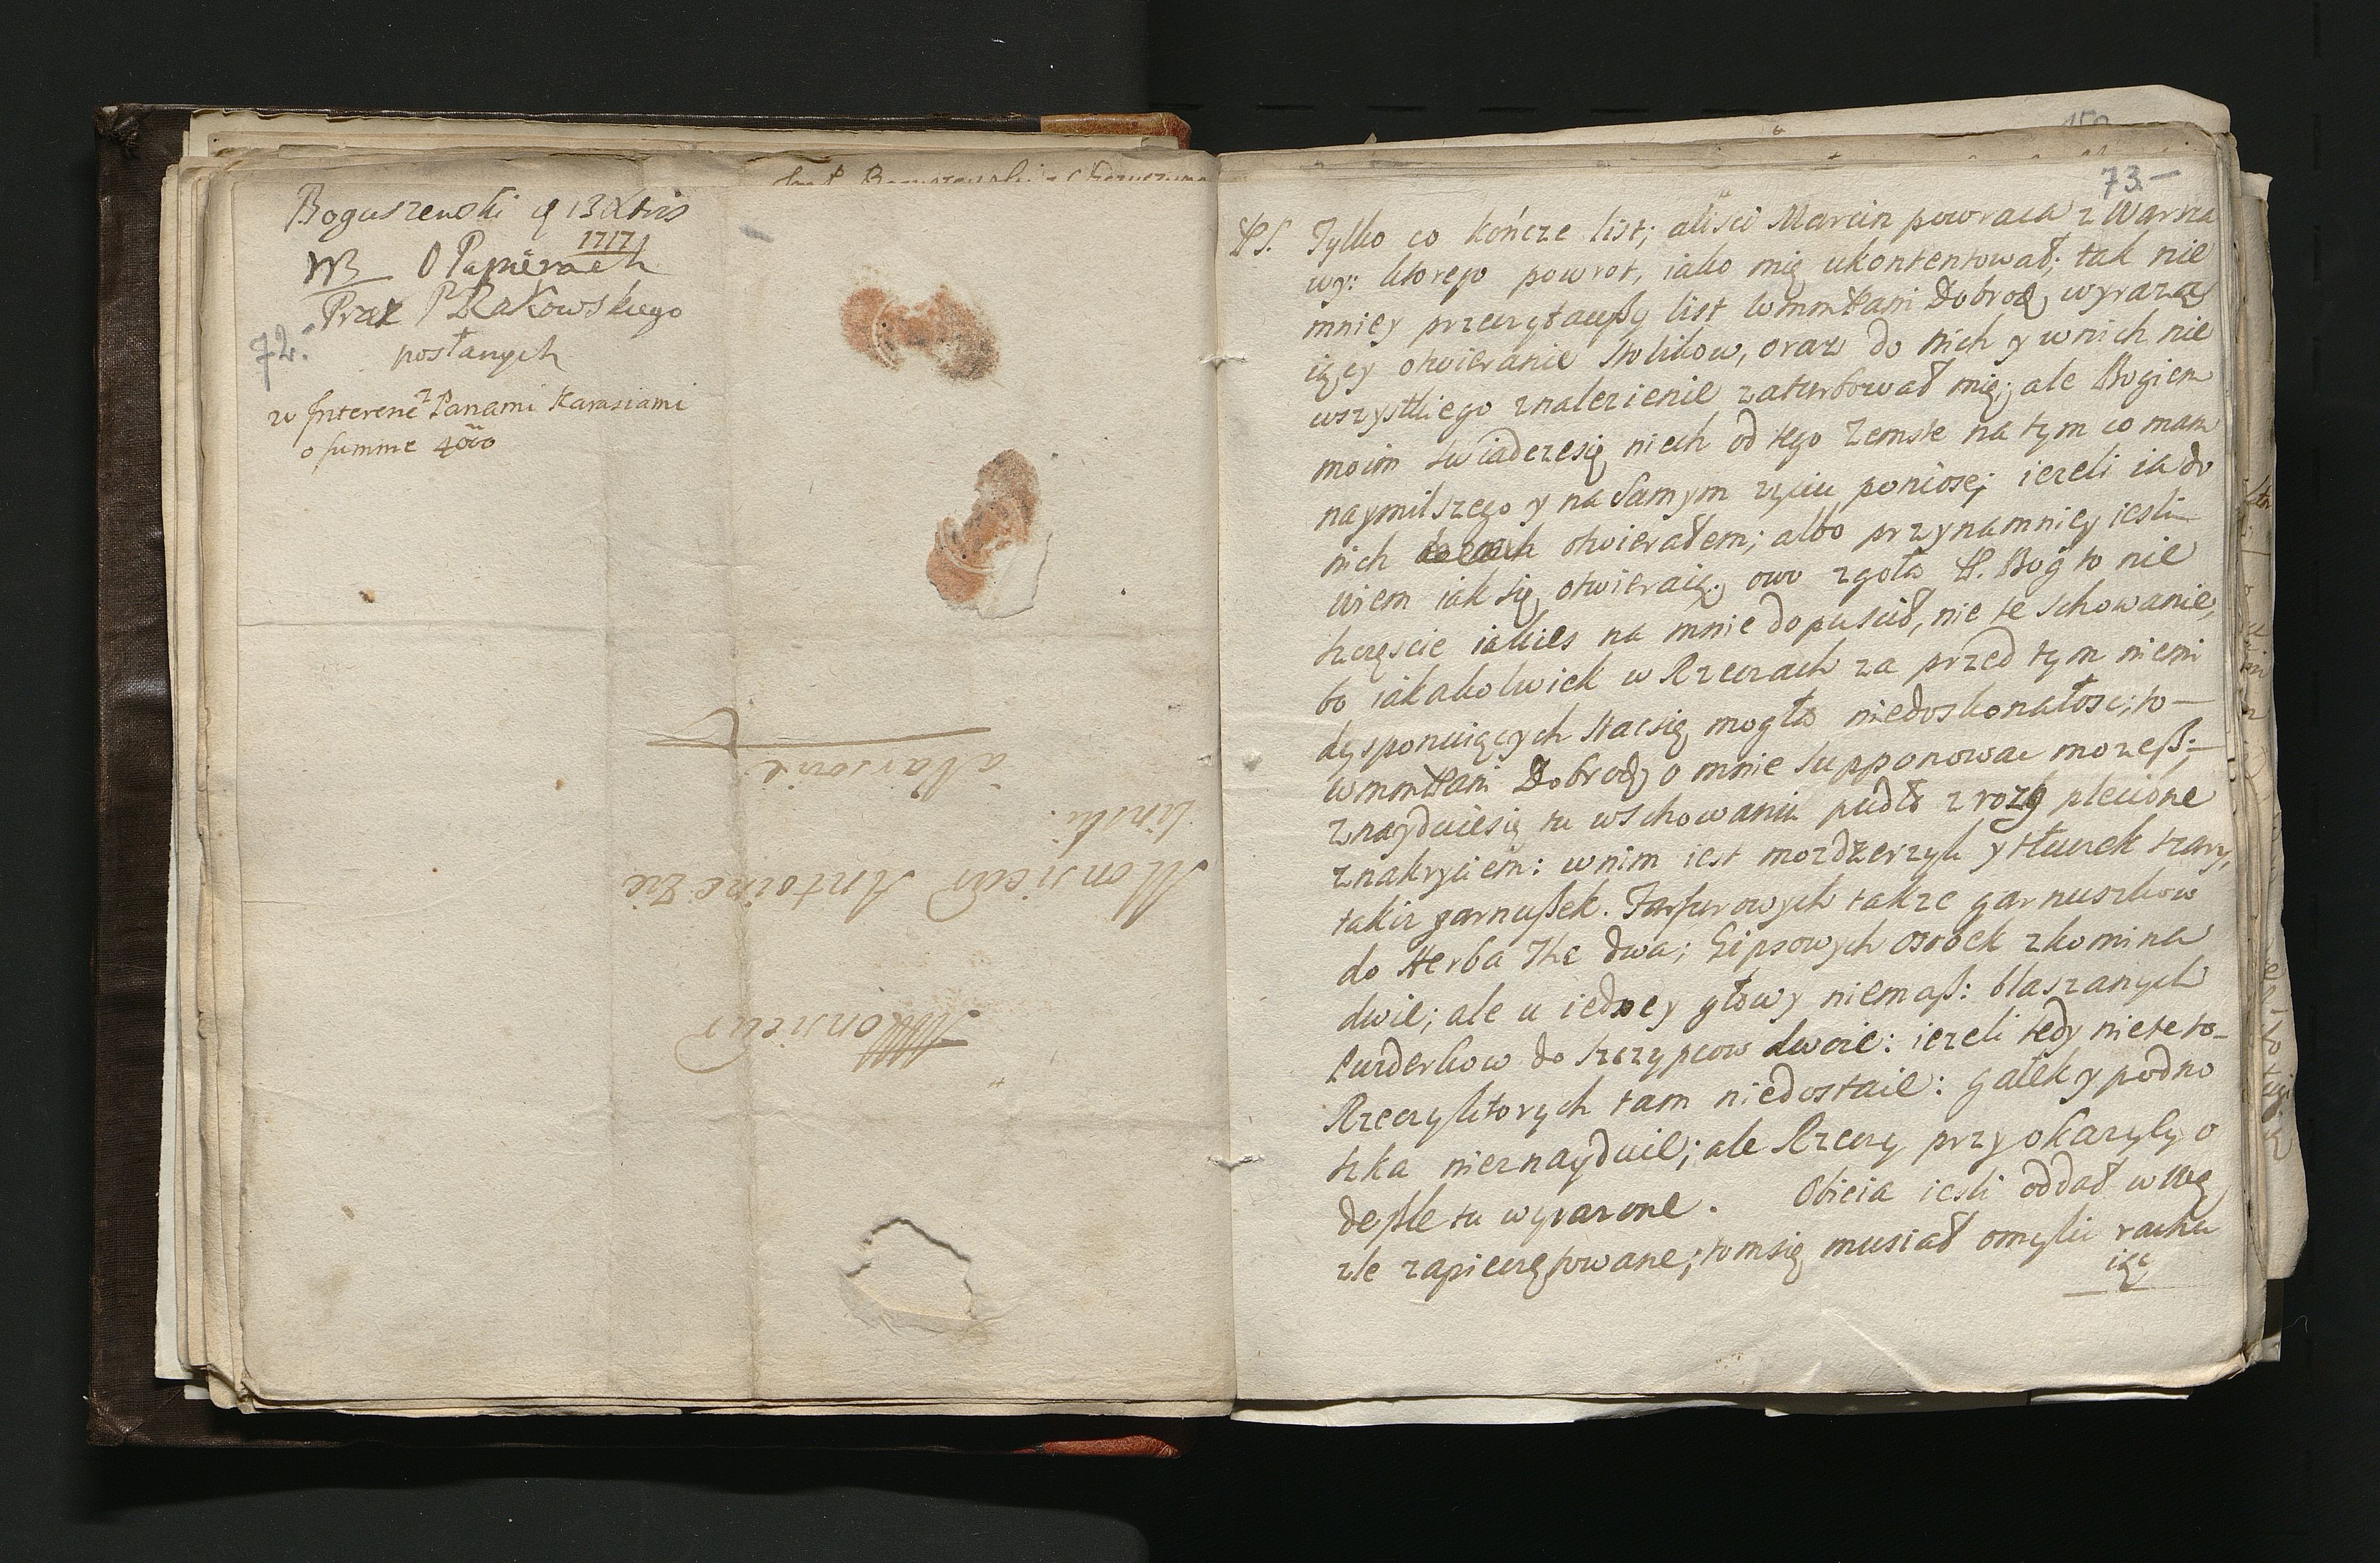 Boguszewski q 13 Xbris
1717
NB O Papierach
Prze P Rakowskiego
72.
posłanych
w Interene z Panami Karasiami
o summe 4000
à Varsovie
linski.
Monsieur Antoine Zie
Monsieur
73.
PS. Tylko co kończe list; aliści Marcin powraca z Warsza
wy: ktorego powrot, iako mię ukontentował; tak nie
mniey przeczytawßy list WmmPani Dobrodz wyraza
iący otwieranie Stolikow, oraz do nich y w nich nie
wszystkiego znalezienie zaturbował mię; ale Bogiem
moim swiadczesię niech od tego zemste na tym co mam
naymilszego y na samym zyciu poniose; iezeli ia do
nich otwierałem; albo przynamniey iesli
wiem iak się otwieraią; owo zgoła P. Bog to nie
szczęscie iakies na mnie dopuscił, nie te schowanie,
bo iakakolwiek w Rzeczach za przed tym niemi
dysponuiących stacsię mogła niedoskonałosc; to
WmmPani Dobrodz o mnie supponowac mozeß;
Znayduiesię tu wschowaniu pudło z rozg plecione
znakryciem: wnim iest mozdzerzyk y tłuczek szary,
takiz garnußek. Farfurowych takze garnuszkow
do Herba The dwa; Gipsowych osobek zkomina
dwie; ale u iedney głowy niemaß: blaszanych
do szczypcow dwoie: iezeli tedy niete to
Rzeczy ktorych tam niedostaie: gałek y podno
szka nieznayduie; ale Rzeczy przy okazyi o
deßle tu wyrazone. Obicia iesli oddał w Wę
zle zapieczętowane; tomsię musiał omylic rachu
iąc